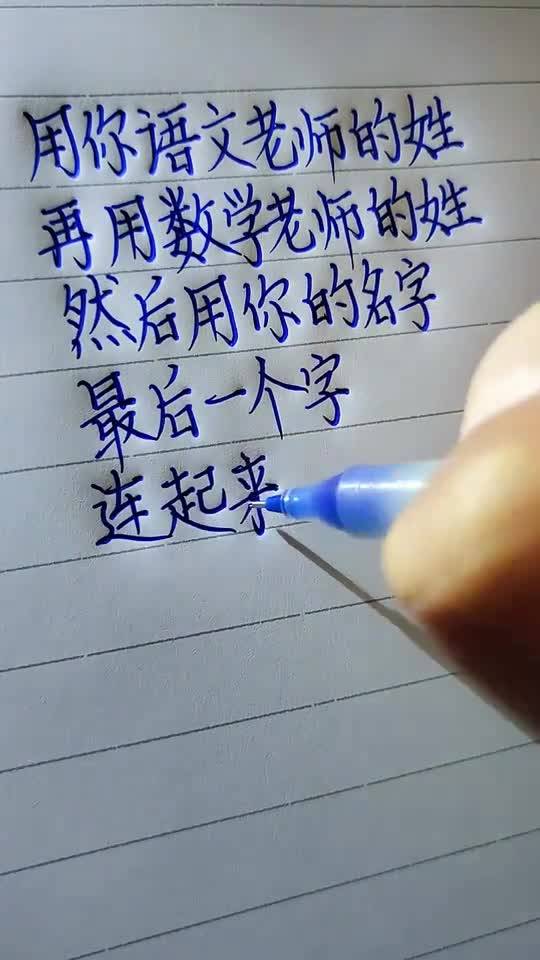 用你语文老师的姓
再用数学老师的姓
然后用你的名字
最后一个字
连起来